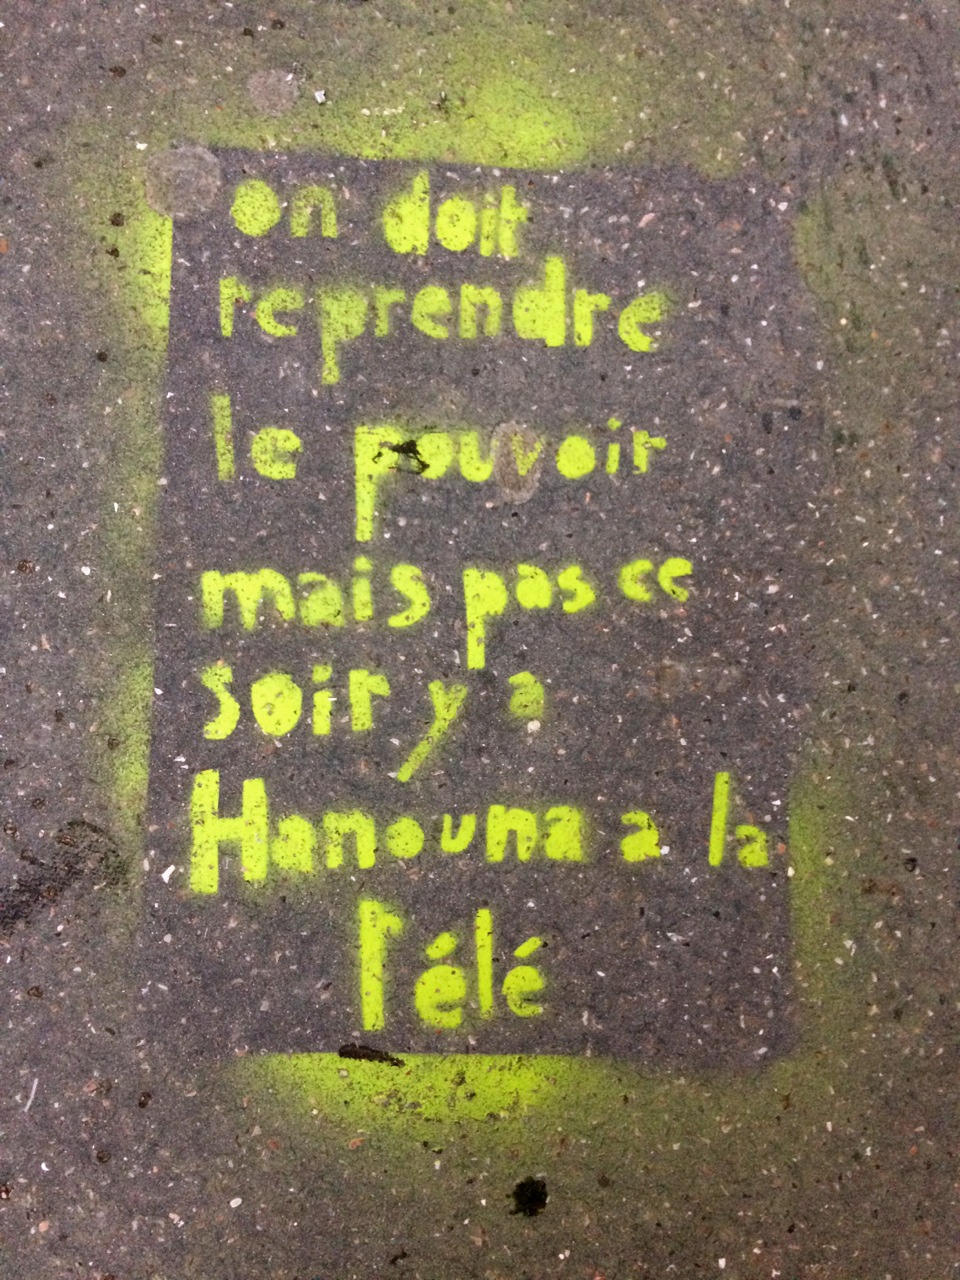 on doit
reprendre
le pouvoir
mais pas ce
soir y a
Hanouna a la
télé